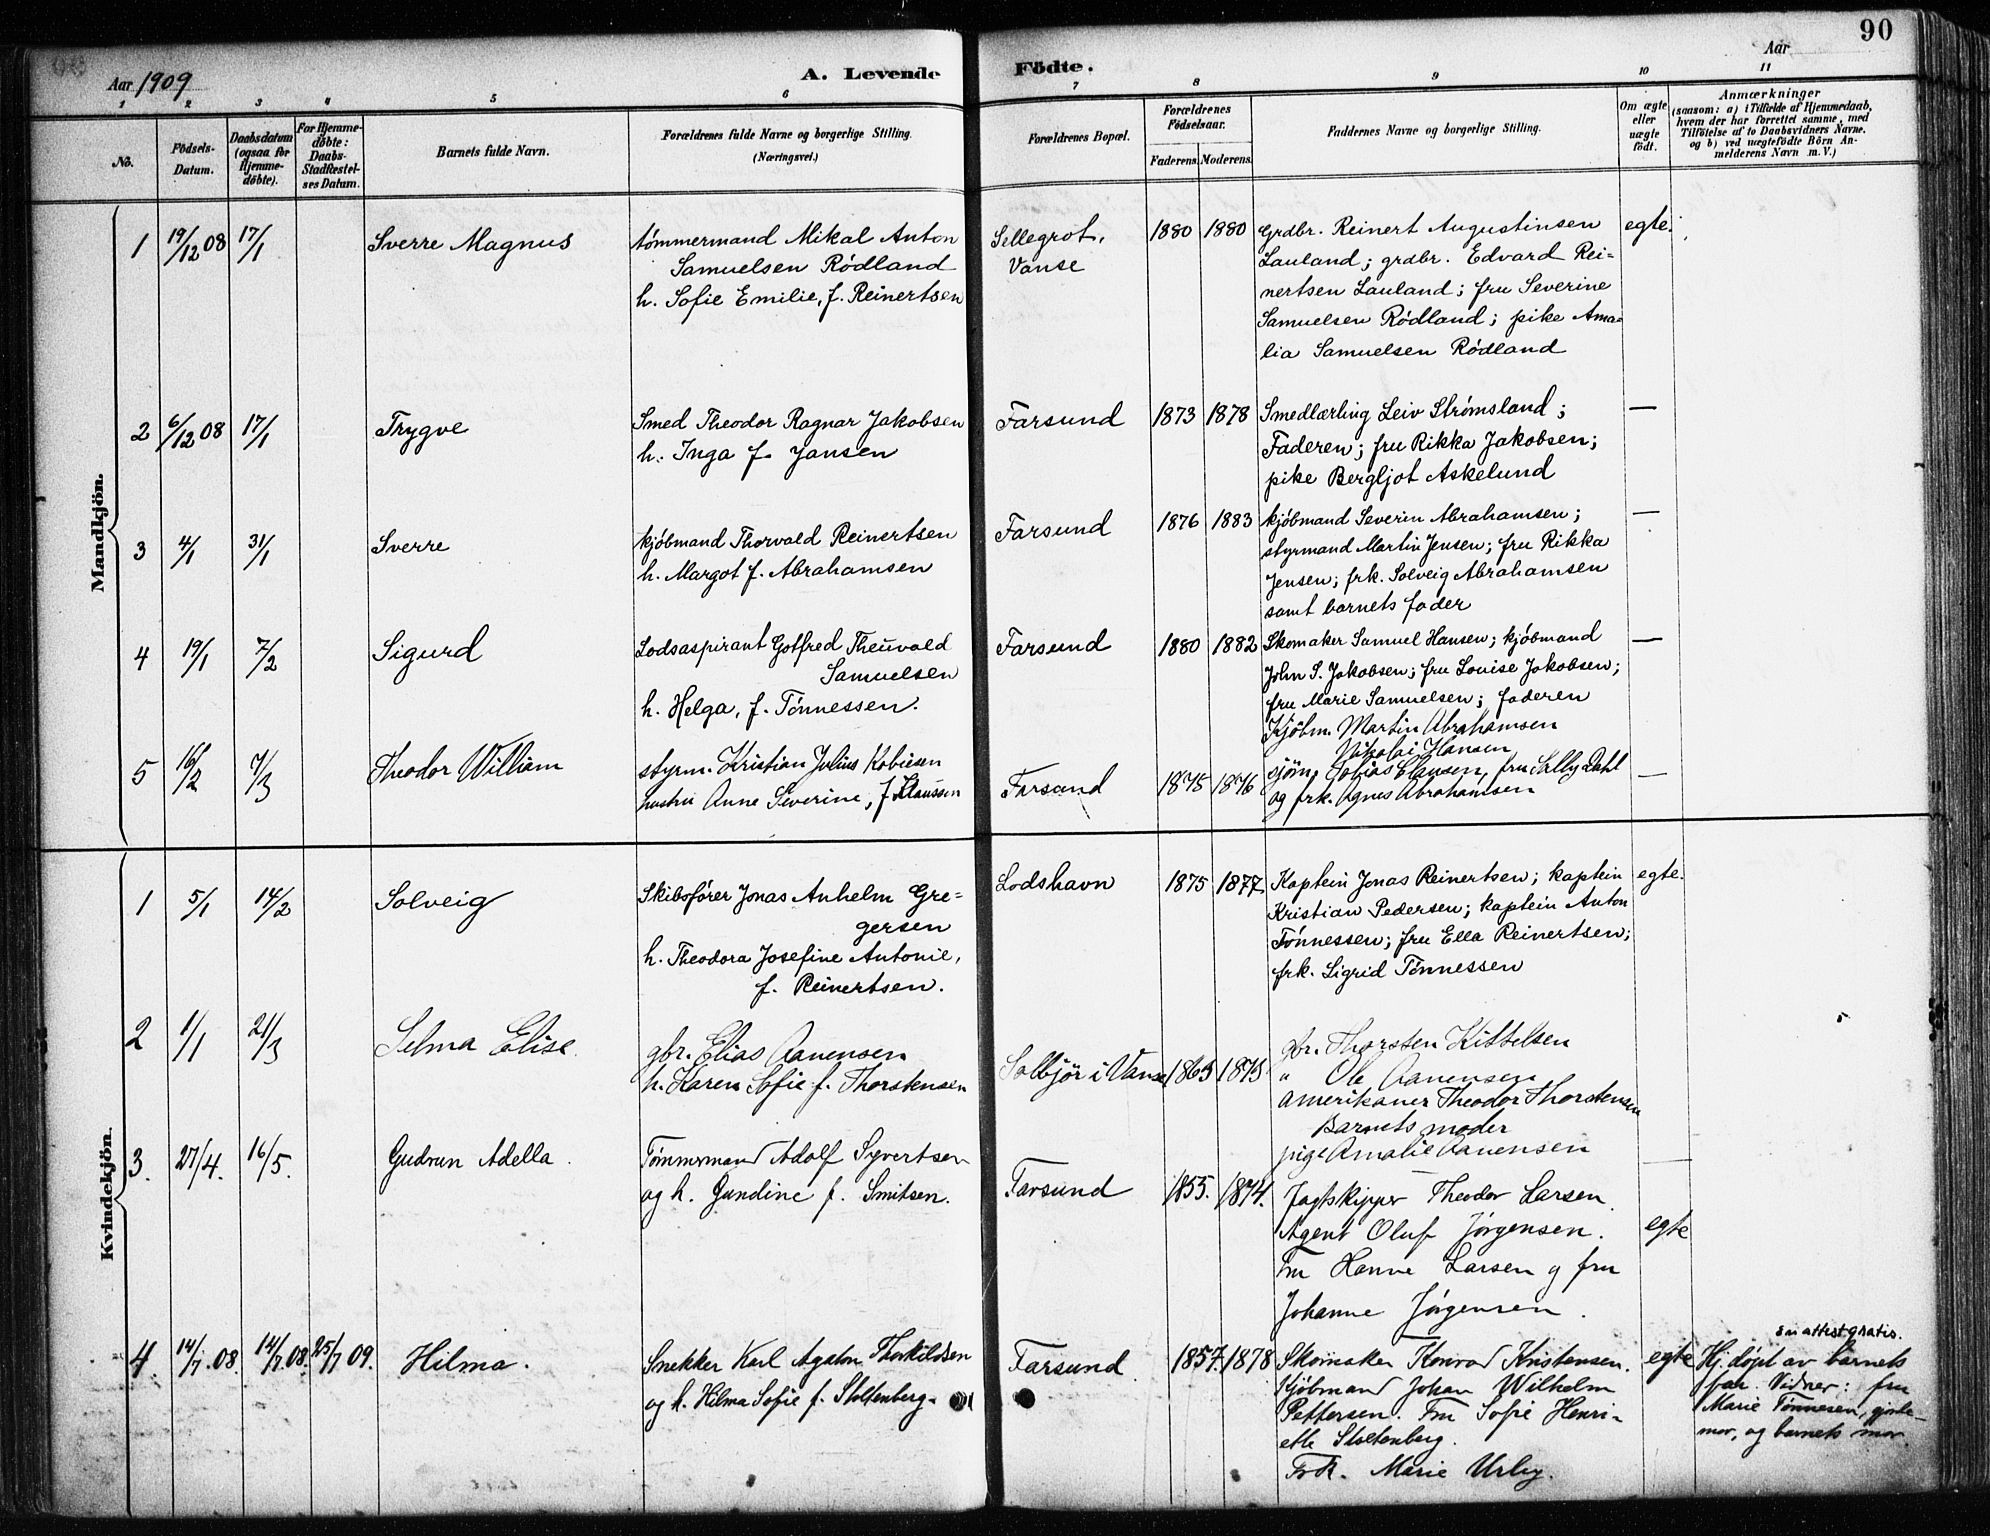 90
Aar 1909
A. Levende
Födte.
Aar
1 2 3 4 5 6 7 8 9 10 11
No.
Födsels-
Datum.
Daabsdatum
(ogsaa for
Hjemme-
döbte).
For Hjemme-
döbte:
Daabs-
Stadfæstel-
ses Datum.
Barnets fulde Navn.
Forældrenes fulde Navne og borgerlige Stilling.
(Næringsvei.)
Forældrenes Bopæl.
Forældrenes
Födselsaar.
Faderens. Moderens.
Faddernes Navne og borgerlige Stilling.
Om ægte
eller
uægte
födt.
Anmærkninger
(saasom: a) i Tilfælde af Hjemmedaab,
hvem der har forrettet samme, med
Tilföielse af to Daabsvidners Navne.
og b) ved uægtefödte Börn An-
melderens Navn m. V.)
Mandkjön.
1 19/12 08 17/1 Sverre Magnus
tömmermand Mikal Anton
Samuelsen Rödland
h. Sofie Emilie, f. Reinertsen
Sellegrot,
Vanse
1880 1880
Grdbr. Reinert Augustinsen
Lauland; grdbr. Edvard Rei=
nertsen Lauland; fru Severine
Samuelsen Rödland; pike Ama=
lia Samuelsen Rödland
egte.
2 6/12 08 17/1 Trygve
Smed Theodor Ragnar Jakobsen
h. Inga f. Jansen
Farsund 1873 1878
Smedlærling Leiv Strømsland;
Faderen; fru Rikka Jakobsen;
pike Bergljot Askelund
—
3 4/1 31/1 Sverre
kjöbmand Thorvald Reinertsen
h. Margot f. Abrahamsen
Farsund 1876 1883
kjöbmand Severin Abrahamsen;
styrmand Martin Jensen; fru Rikka
Jensen; frk. Solveig Abrahamsen
samt barnets fader
—
4 19/1 7/2 Sigurd
Lodsaspirant Gotfred Theuvald
Samuelsen
h. Helga, f. Tönnessen.
Farsund 1880 1882
Skomaker Samuel Hansen; kjöbmand
John S. Jakobsen; fru Louise Jakobsen;
fru Marie Samuelsen; faderen
—
5 16/2 7/3 Theodor William
styrm. Kristian Julius Kobiesen
hustru Anne Severine, f. Klaussen
Farsund 1875 1876
Kjöbm. Martin Abrahamsen
Nikolai Hansen
sjöm. Tobias Clausen, fru Sally Dahl
og frk. Agnes Abrahamsen
—
Kvindekjön.
1 5/1 14/2 Solveig
Skibsförer Jonas Anhelm Gre=
gersen
h. Theodora Josefine Antonie,
f. Reinertsen.
Lodshavn 1875 1877
Kaptein Jonas Reinertsen; kaptein
Kristian Pedersen; kaptein Anton
Tönnessen; fru Ella Reinertsen;
frk. Sigrid Tönnessen
egte.
2 1/1 21/3 Selma Elise
gbr. Elias Aanensen
h. Karen Sofie f. Thorstensen
Solbjör i Vanse 1865 1875
gbr. Thorsten Kittelsen
" Ole Aanensen
amerikaner Theodor Thorstensen
Barnets moder
pige Amalie Aanensen
—
3. 27/4. 16/5. Gudrun Adella.
Tömmermand Adolf Syvertsen
og h. Gundine f. Smitsen.
Farsund 1855. 1874.
Jagtskipper Theodor Larsen.
Agent Oluf Jørgensen.
Fru Hanne Larsen og fru
Johanne Jörgensen.
egte
4. 14/7. 08. 14/7. 08. 25/7 09. Hilma.
Snekker Karl Agaton Thorkildsen
og h. Hilma Sofie f. Stoltenberg.
Farsund. 1857. 1878
Skomaker Konrad Kristensen.
Kjöbmand Johan Wilhelm
Pettersen. Fru Sofie Henri-
ette Stoltenberg.
Frk. Marie Urby.
egte
en attest gratis.
Hj. døpt av barnets
far. Vidner: fru
Marie Tönnesen, jorde-
mor, og barnets mor.